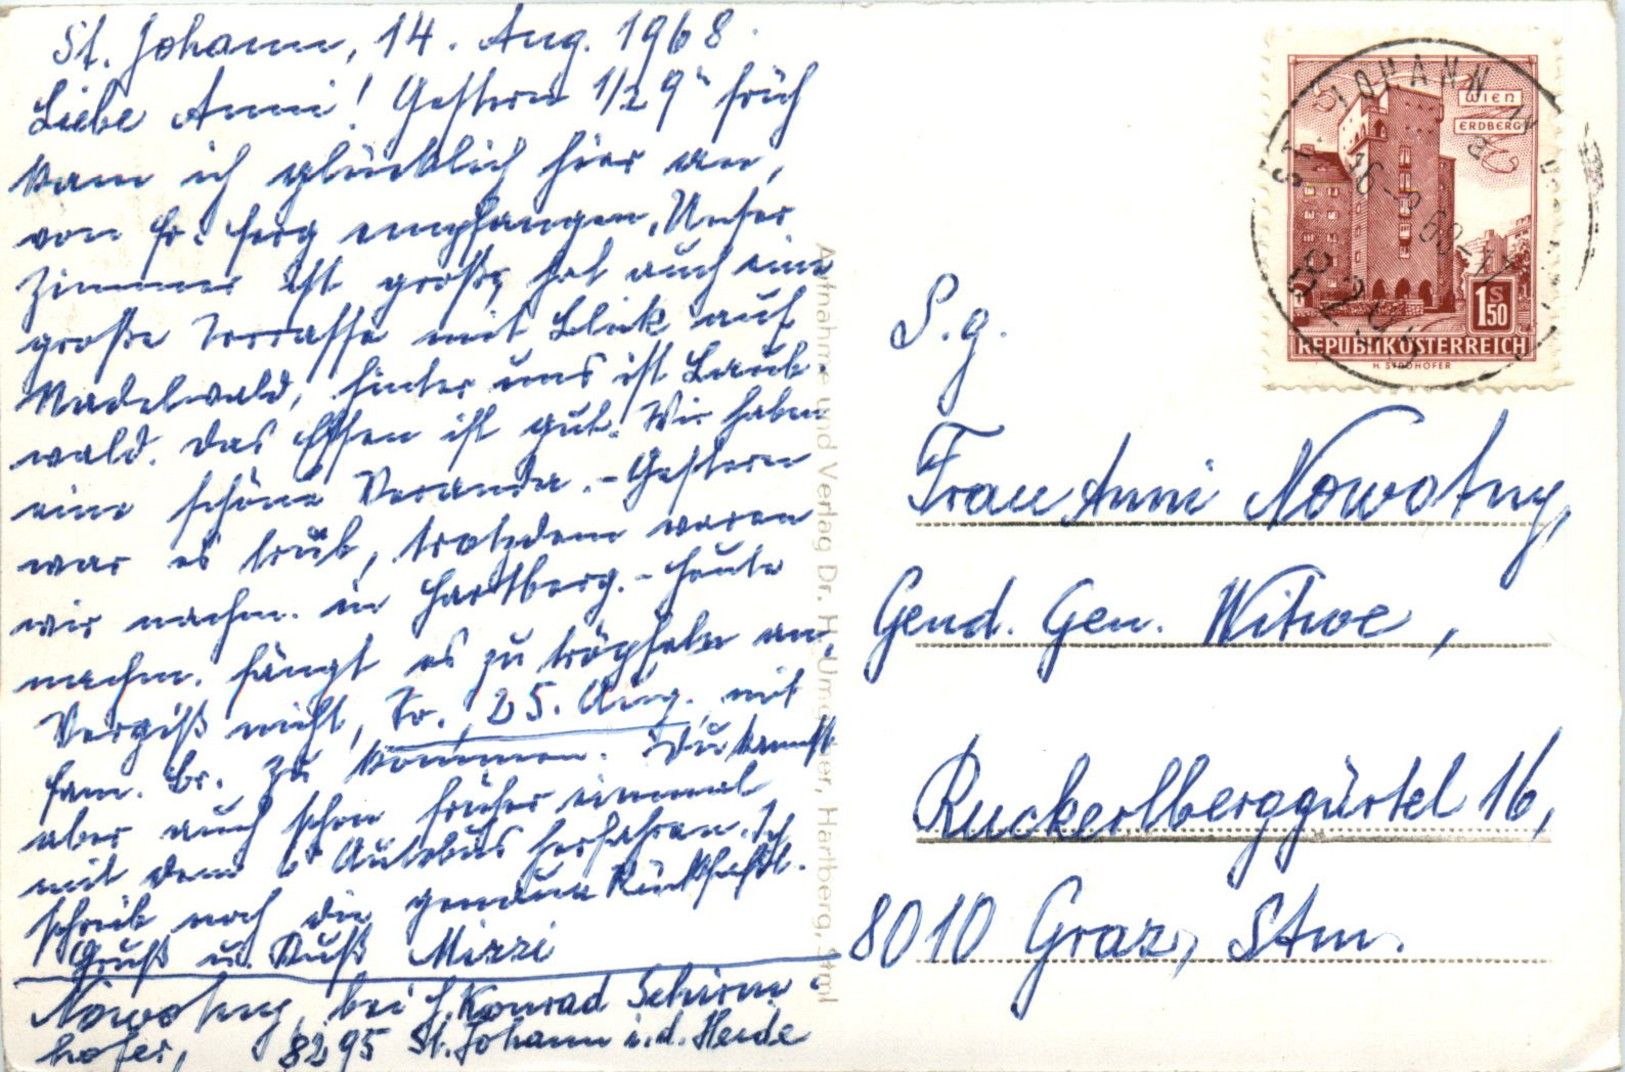 St. Johann, 14. Aug. 1968.
Liebe Anni! Gestern 1/2 9h früh
kam ich glücklich hier an,
von Fr. empfangen. Unser
Zimmer ist groß, hat auch eine
große Terrasse mit Blick auf
Nadelwald, hinter uns ist Laub-
wald. Das Essen ist gut. Wir haben
eine schöne Veranda. - Gestern
war es trüb, trotzdem waren
wir nachm. in Hartberg. - Heute
nachm. fängt es zu tröpfeln an.
Vergiß nicht, So., 25. Aug. mit
Fam. Br. zu kommen. Du kannst
aber auch schon früher einmal
mit dem Autobus herfahren. Ich
schreib noch die genaue Rückfahrt.
Gruß u. Kuß Mizzi
Nowotny, bei Konrad Schirn-
hofer, 8295 St. Johann i. d. Heide
Aufnahme und Verlag Dr. H. Hartberg, Stmk
WIEN
ERDBERG
S
1 50
REPUBLIK ÖSTERREICH
ST. JOHANN
8295
S. g.
Frau Anni Nowotny,
Gend. Gen. Witwe,
Ruckerlberggürtel 16,
8010 Graz, Stm.